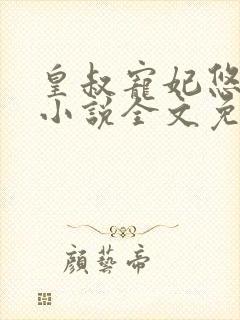 皇叔寵妃悠
小說全文免
顏藝帝